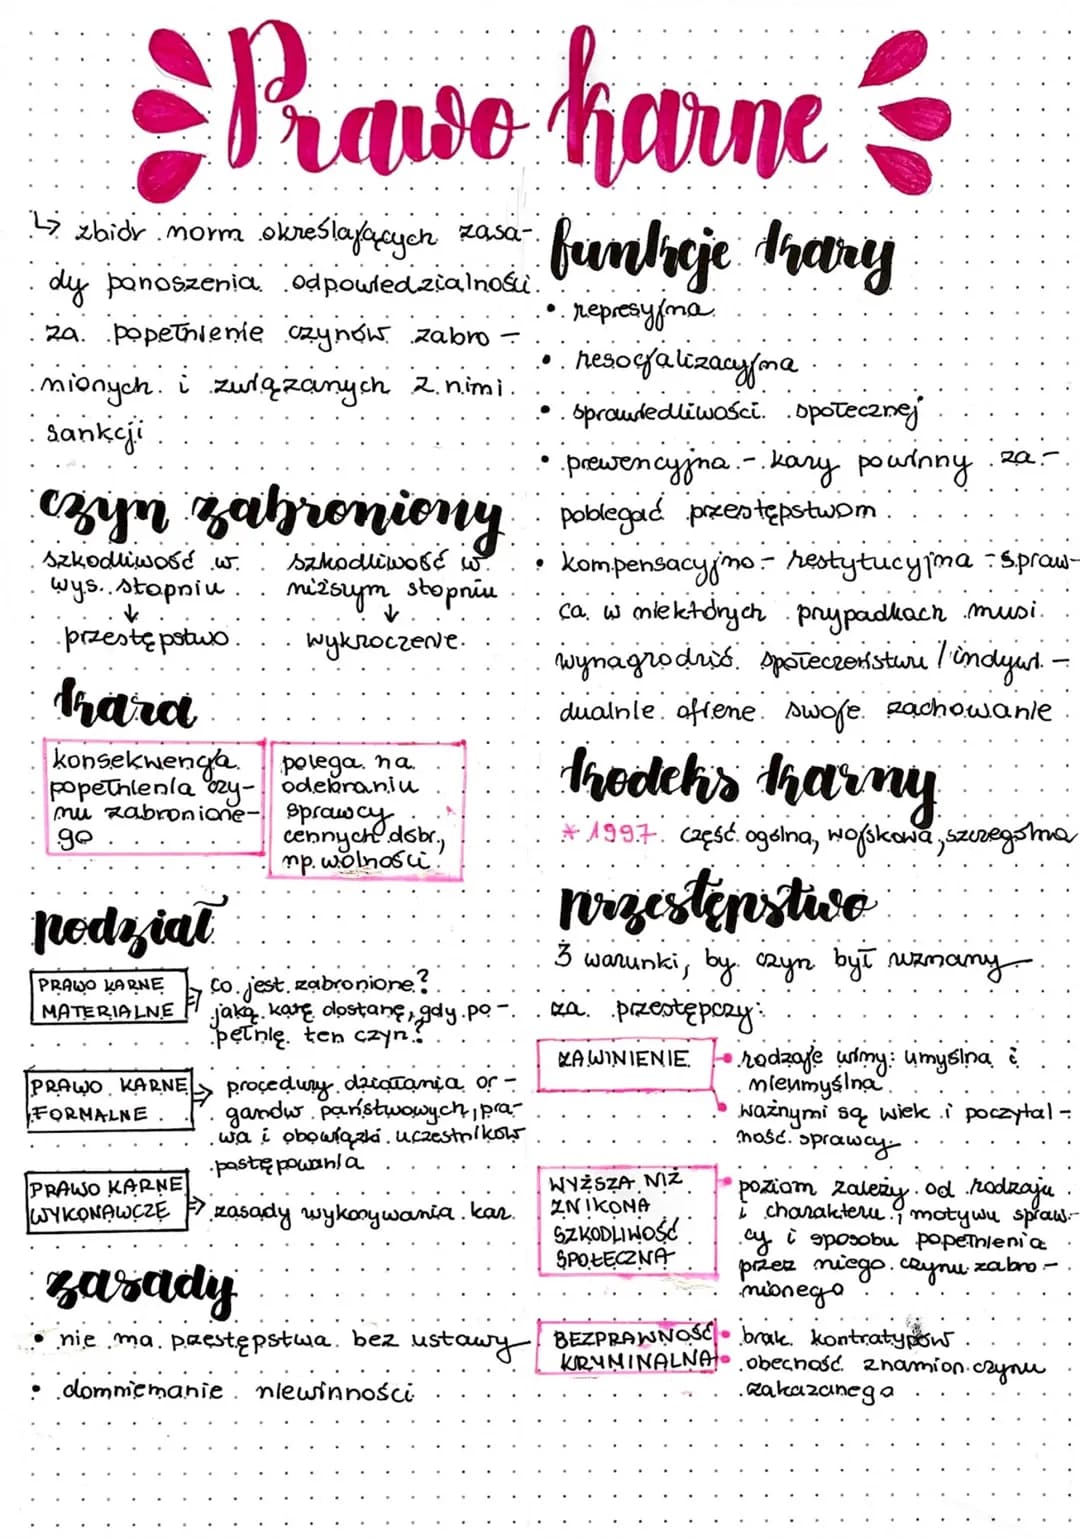 Prawo karne
↳ zbiór norm określających zasa-
dy ponoszenia odpowiedzialności
za popełnienie czynów zabro-
nionych i związanych z nimi
sankcji
czyn zabroniony
szkodliwość w
wys. stopniu
↓
przestępstwo
szkodliwość w
niższym stopniu
↓
wykroczenie
kara
konsekwencja
popełnienia czy-
nu zabronione-
go
polega na
odebraniu
sprawcy
cennych dóbr,
np. wolności
podział
PRAWO KARNE
MATERIALNE
co jest zabronione?
jaką karę dostanę, gdy po-
pełnię ten czyn?
PRAWO KARNE
FORMALNE
procedury działania or-
ganów państwowych, pra-
wa i obowiązki uczestników
postępowania
PRAWO KARNE
WYKONAWCZE
zasady wykonywania kar
zasady
• nie ma przestępstwa bez ustawy
• domniemanie niewinności
funkcje kary
• represyjna
• resocjalizacyjna
• sprawiedliwości społecznej
• prewencyjna - kary powinny za-
pobiegać przestępstwom
• kompensacyjno - restytucyjna - spraw-
ca w niektórych przypadkach musi
wynagrodzić społeczeństwu / indywi-
dualnie ofierze swoje zachowanie
kodeks karny
* 1997. część ogólna, wojskowa, szczególna
przestępstwo
3 warunki, by czyn był uznany
za przestępczy:
ZAWINIENIE
rodzaje winy: umyślna i
nieumyślna
ważnymi są wiek i poczytal-
ność sprawcy
WYŻSZA NIŻ
ZNIKOMA
SZKODLIWOŚĆ
SPOŁECZNA
poziom zależy od rodzaju
i charakteru, motywu spraw-
cy i sposobu popełnienia
przez niego czynu zabro-
nionego
BEZPRAWNOŚĆ
KRYMINALNA
brak kontratypów
obecność znamion czynu
zakazanego